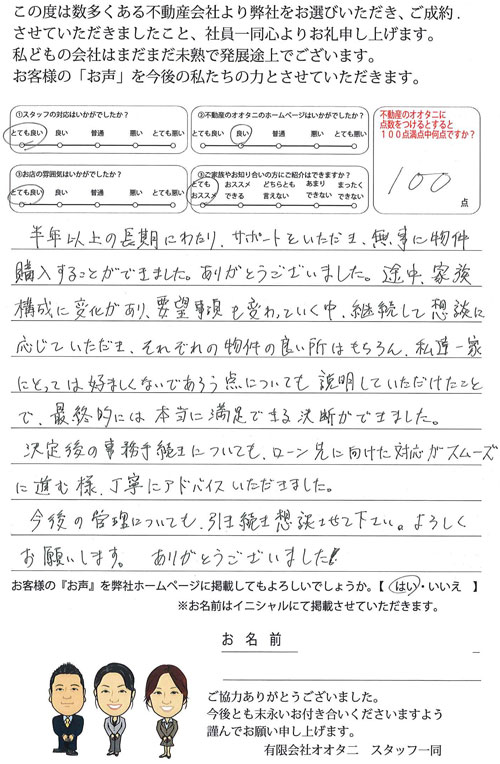 この度は数多くある不動産会社より弊社をお選びいただき、ご成約
させていただきましたこと、社員一同心よりお礼申し上げます。
私どもの会社はまだまだ未熟で発展途上でございます。
お客様の「お声」を今後の私たちの力とさせていただきます。
①スタッフの対応はいかがでしたか?
とても良い 良い 普通 悪い とても悪い
②不動産のオオタニのホームページはいかがでしたか?
とても良い 良い 普通 悪い とても悪い
③お店の雰囲気はいかがでしたか?
とても良い 良い 普通 悪い とても悪い
③ご家族やお知り合いの方にご紹介はできますか?
とても おススメ どちらとも あまり まったく
おススメ できる 言えない できない できない
不動産のオオタニに
点数をつけるとすると
100点満点中何点ですか?
100
点
半年以上の長期にわたり、サポートいただき、無事に物件
購入することができました。ありがとうございました。途中、家族
構成に変化があり、要望事項も変わっていく中、継続して想談に
応じていただき、それぞれの物件の良い所はもちろん、私達一家
にとっては好ましくないであろう点についても説明していただけたこと
で、最終的には本当に満足できる決断ができました。
決定後の事務手続きについても、ローン先に向けた対応がスムーズ
に進む様、丁寧にアドバイスいただきました。
今後の管理についても、引き続き想談させて下さい。よろしく
お願いします。 ありがとうございました!
お客様の『お声』を弊社ホームページに掲載してもよろしいでしょうか。【 はい・いいえ 】
※お名前はイニシャルにて掲載させていただきます。
お名前
ご協力ありがとうございました。
今後とも末永いお付き合いくださいますよう
謹んでお願い申し上げます。
有限会社オオタニ スタッフ一同